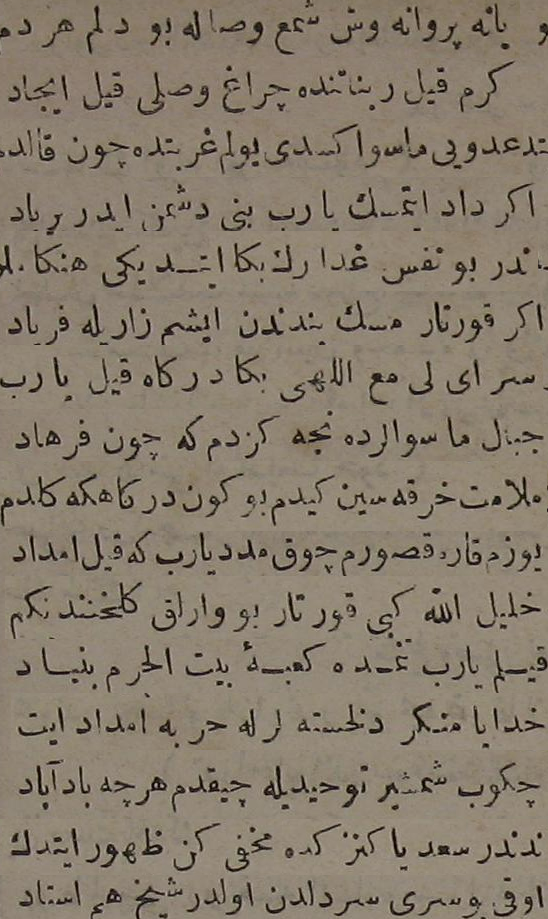 یانه پروانه وش شمع وصاله بو دلم هر دم
کرم قیل ربناننده چراغ وصلی قیل ایجاد
عدویی ماسوا کسدی یولم غربتده چون قالدم
اکر داد ایتمسك یا رب بنی دشمن ایدر برباد
ندر بو نفس غدارك بکا ایتدیکی هنکامه
اکر قورتار مسك بندندن ایشم زاریله فریاد
سرای لی مع اللهی بکا درکاه قیل یا رب
جبال ما سوالرده نجه کزدم که چون فرهاد
ملامت خرقه سین کیدم بو کون درکاهکه کلدم
یوزم قاره قصورم چوق مدد یارب که قیل امداد
خلیل الله کبی قورتار بو وارلق کلخنندنکم
قیلم یارب غمده کعبهٔ بیت الحرم بنیاد
خدایا منکر دلخسته لرله حربه امداد ایت
چکوب شمشیر توحیدیله چیقدم هرچه بادآباد
ندندر سعدیا کنز کده مخفی کن ظهور ایتدك
اوقی بو سری سردلدن اولدر شیخ هم استاد